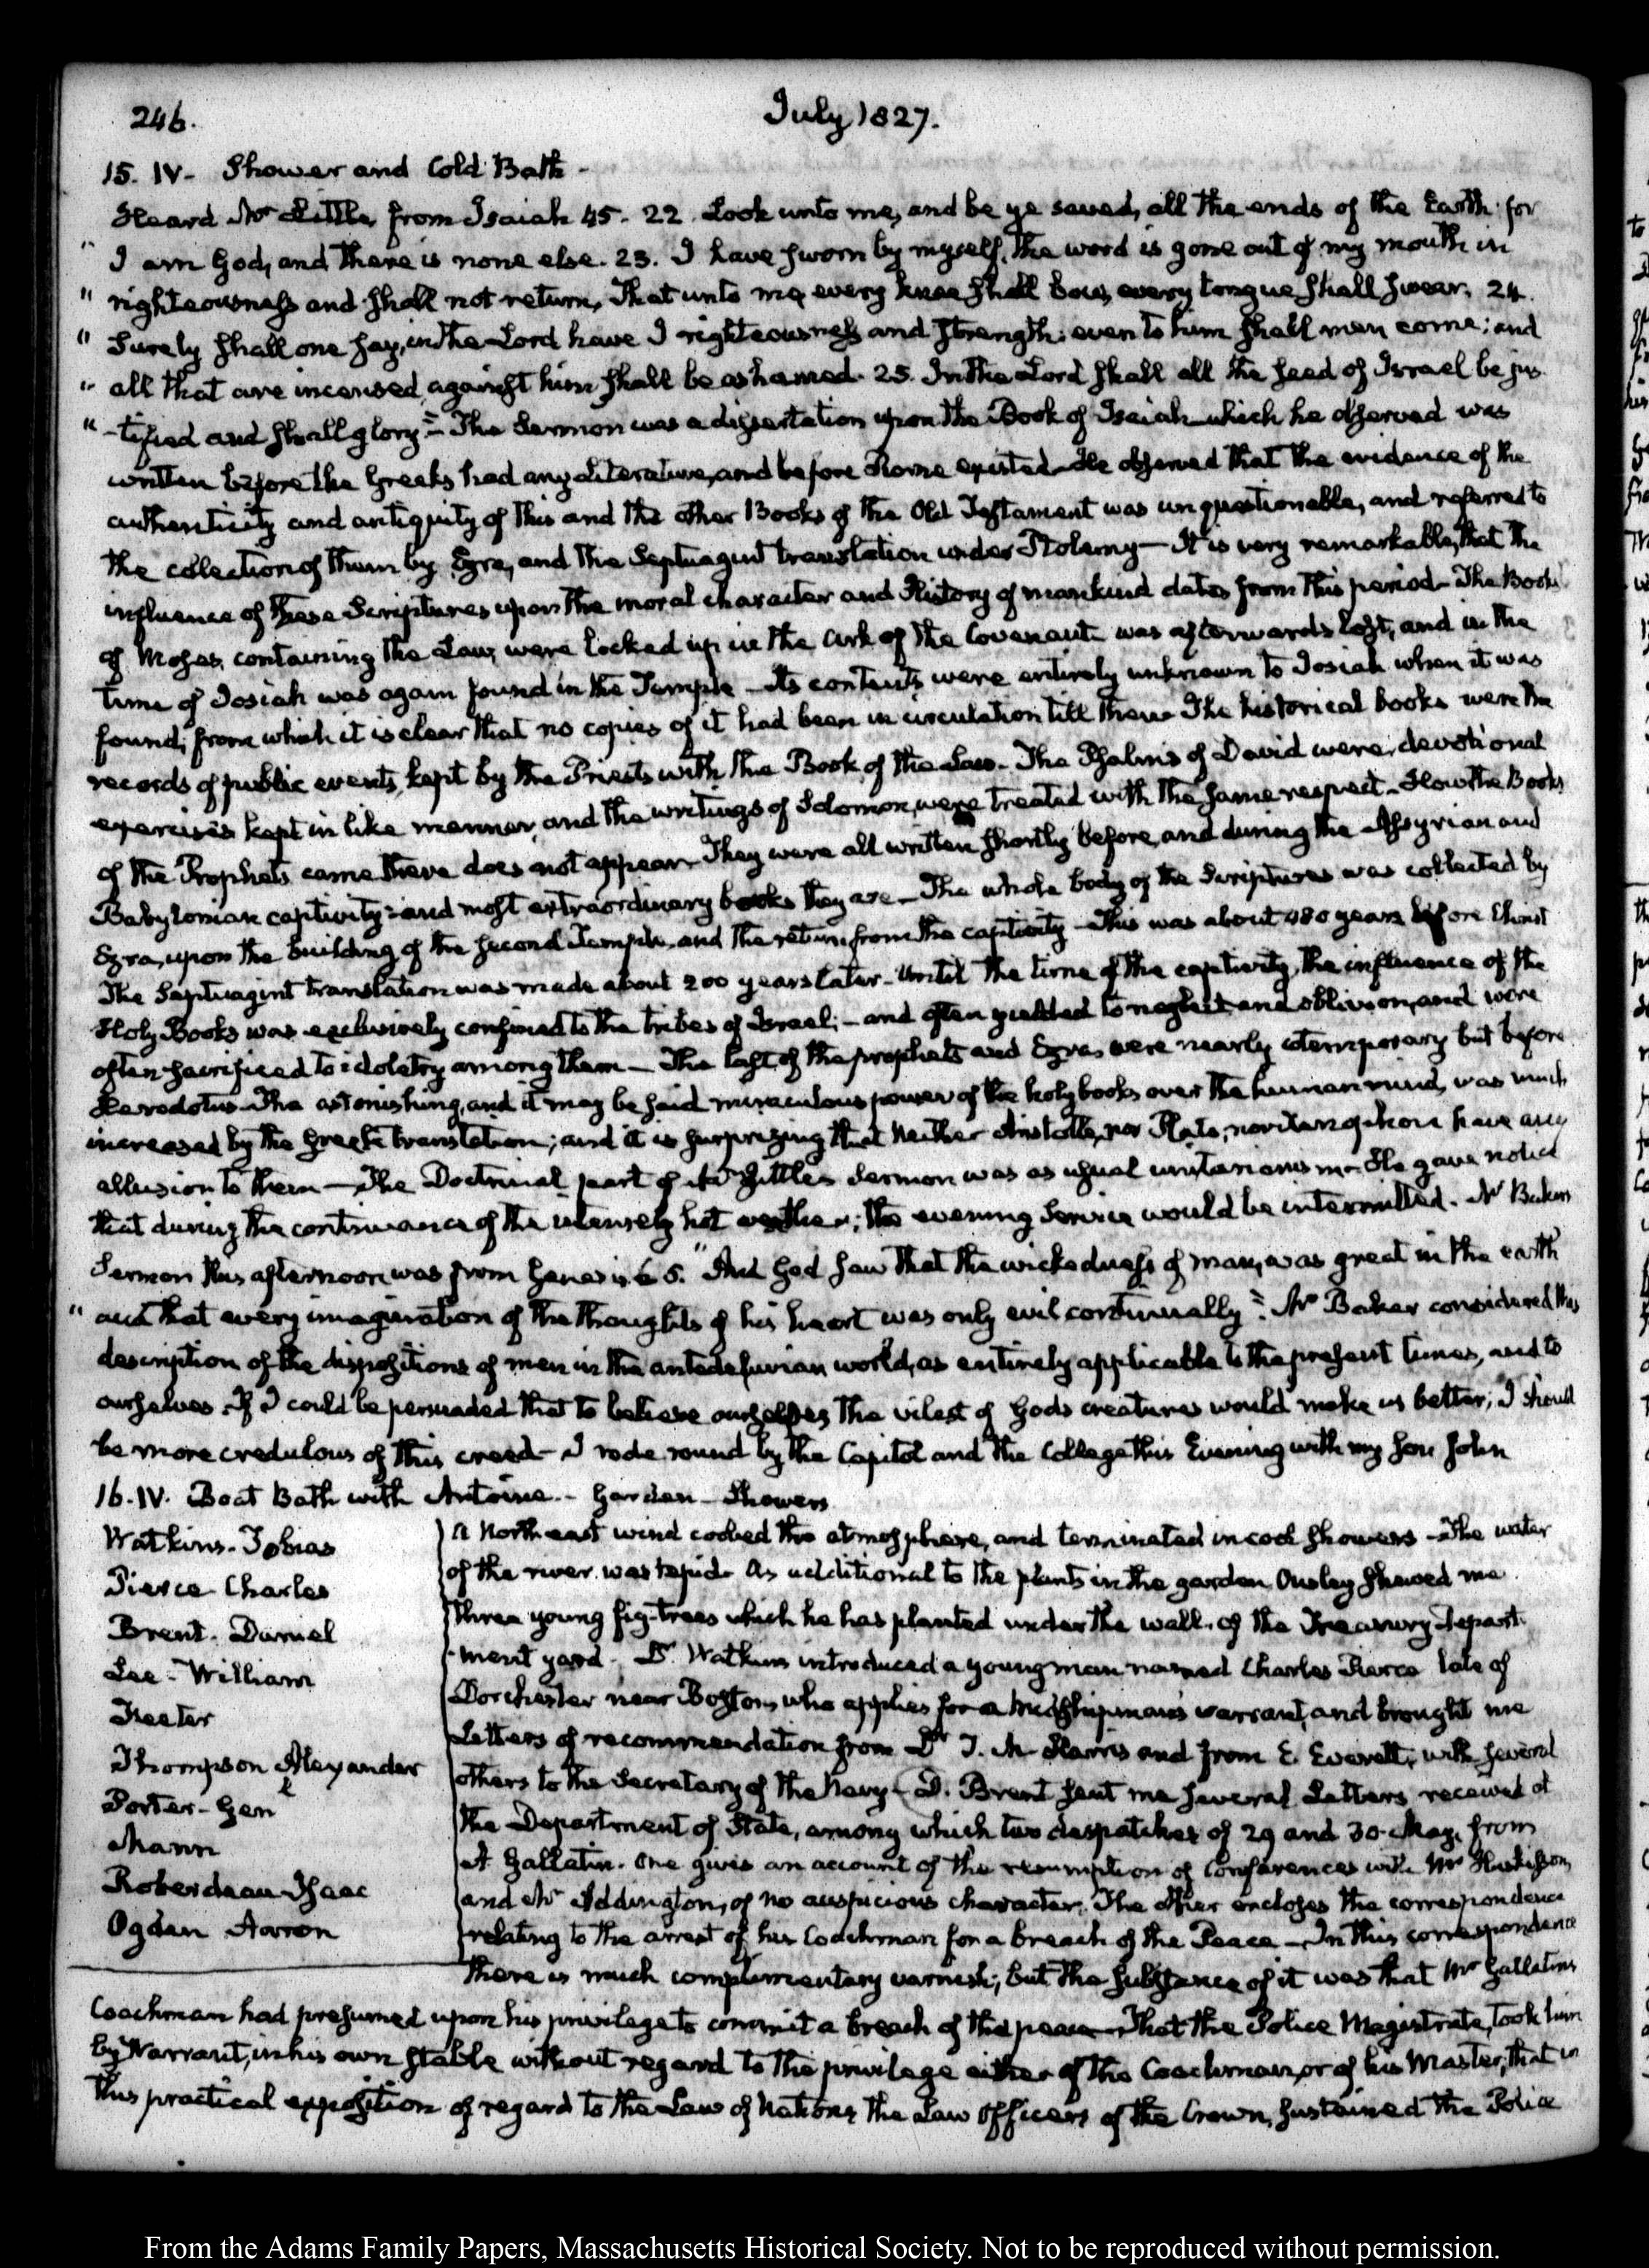 246.
July 1827.
15. IV. Shower and Cold Bath -
Heard Mr Little, from Isaiah 45. 22. Look unto me, and be ye saved, all the ends of the Earth: for
" I am God, and there is none else. 23. I have sworn by myself, the word is gone out of my mouth in
" righteousness and shall not return, That unto me every knee shall bow, every tongue shall swear. 24.
" Surely shall one say, in the Lord have I righteousness and strength: even to him shall men come; and
" all that are incensed against him shall be ashamed. 25. In the Lord shall all the seed of Israel be jus
" -tified and shall glory" - The Sermon was a dissertation upon the Book of Isaiah which he observed was
written before the Greeks had any Literature, and before Rome existed - He observed that the evidence of the
authenticity and antiquity of this and the other Books of the Old Testament was unquestionable, and referred to
the collection of them by Ezra, and the Septuagint translation under Ptolemy - It is very remarkable, that the
influence of these Scriptures upon the moral character and History of mankind dates from this period - The Book
of Moses, containing the Law, were locked up in the Ark of the Covenant - was afterwards lost, and in the
time of Josiah was again found in the Temple - Its contents were entirely unknown to Josiah when it was
found; from which it is clear that no copies of it had been in circulation till then - The historical books were the
records of public events, kept by the Priests with the Book of the Law - The Psalms of David were devotional
exercises kept in like manner, and the writings of Solomon, were treated with the same respect - How the Books
of the Prophets came there does not appear - They were all written shortly before, and during the Assyrian and
Babylonian captivity: and most extraordinary books they are - The whole body of the Scriptures was collected by
Ezra, upon the building of the second Temple, and the return from the captivity - This was about 480 years before Christ
The Septuagint translation was made about 200 years later - Until the time of the captivity, the influence of the
Holy Books was exclusively confined to the tribes of Israel; - and often yielded to neglect and oblivion, and were
often sacrificed to idolatry among them - The last of the prophets and Ezra, were nearly cotemporary but before
Herodotus - The astonishing, and it may be said miraculous power of the holy books over the human mind, was much
increased by the Greek translation; and it is surprizing that neither Aristotle, nor Plato, nor Xenophon have any
allusion to them - The Doctrinal part of Mr Little's Sermon was as usual unitarianism - He gave notice
that during the continuance of the intensely hot weather; the evening Service would be intermitted. Mr Bakers
Sermon this afternoon was from Genesis 6 5. "And God saw that the wickedness of man, was great in the earth
" and that every imagination of the thoughts of his heart was only evil continually": Mr Baker considered this
description of the dispositions of men in the antedeluvian world, as entirely applicable to the present times, and to
ourselves. If I could be persuaded that to believe ourselves the vilest of Gods creatures would make us better, I should
be more credulous of this creed - I rode round by the Capitol and the College this Evening with my Son John
16. IV. Boat Bath with Antoine. - Garden - Showers
Watkins - Tobias
Pierce Charles
Brent. Daniel
Lee - William
Thompson Alexander
Porter - Genl
Mann
Roberdeau Isaac
Ogden Aaron
A North east wind cooled the atmosphere, and terminated in cool showers - The water
of the river was tepid - As additional to the plants in the garden Ousley shewed me
three young fig-trees which he has planted under the wall of the Treasury Depart
-ment yard. Dr. Watkins introduced a young man named Charles Pierce late of
Dorchester near Boston, who applies for a Midshipman's warrant, and brought me
Letters of recommendation from Dr T. M. Harris and from E. Everett; with several
others to the Secretary of the Navy - D. Brent sent me several Letters received at
the Department of State, among which two despatches of 29 and 30. May, from
A Gallatin. One gives an account of the resumption of Conferences with Mr Huskisson,
and Mr Addington, of no auspicious character. The other encloses the correspondence
relating to the arrest of his Coachman for a breach of the Peace - In this correspondence
there is much complimentary varnish; but the substance of it was that Mr Gallatins
Coachman had presumed upon his privilege to commit a breach of the peace - That the Police Magistrate, took him
by Warrant, in his own stable without regard to the privilege either of the Coachman, or of his Master; that in
this practical exposition of regard to the Law of Nations, the Law Officers of the Crown, sustained the Police
From the Adams Family Papers, Massachusetts Historical Society. Not to be reproduced without permission.